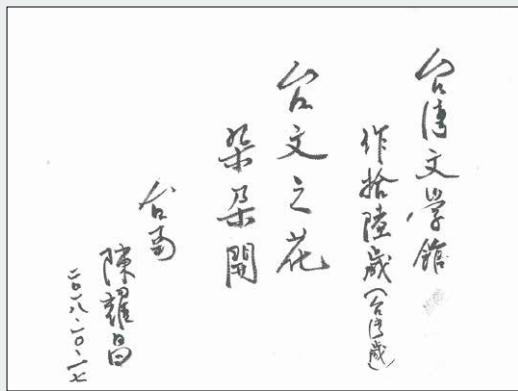 台湾文學館
作拾陸歲(台湾歲)
台文之花
朵朵開
台南
陳耀昌
二〇一八.一〇.一七